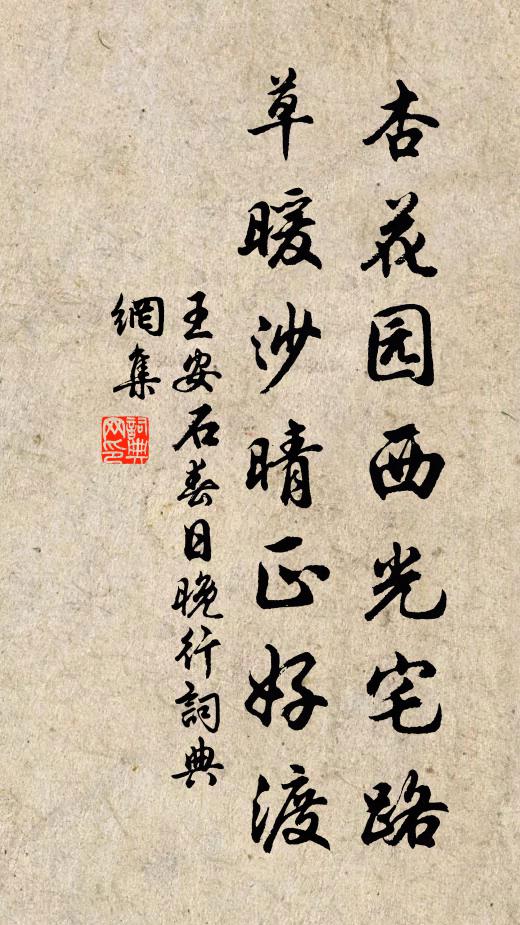 杏花园西光宅路
草暖沙晴正好渡
王安石春日晚行詞典
網集
詞典网印